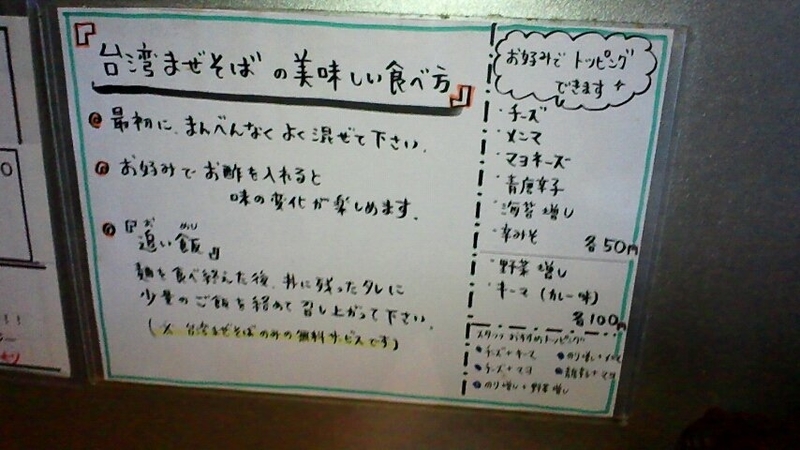 『台湾まぜそばの美味しい食べ方』
最初に、まんべんなくよく混ぜて下さい。
お好みでお酢を入れると
味の変化が楽しめます。
『追い飯』
お めし
麺を食べ終えた後、丼に残ったタレに
少量のご飯を絡めて召し上がって下さい。
(※ 台湾まぜそばのみの無料サービスです)
お好みでトッピング
できます
・チーズ
・メンマ
・マヨネーズ
・青唐辛子
・海苔増し
・辛みそ
各50円
・野菜増し
・キーマ(カレー味)
各100円
スタッフおすすめトッピング
チーズ+キーマ
のり増し+メンマ
チーズ+マヨ
青唐辛子+マヨ
のり増し+野菜増し